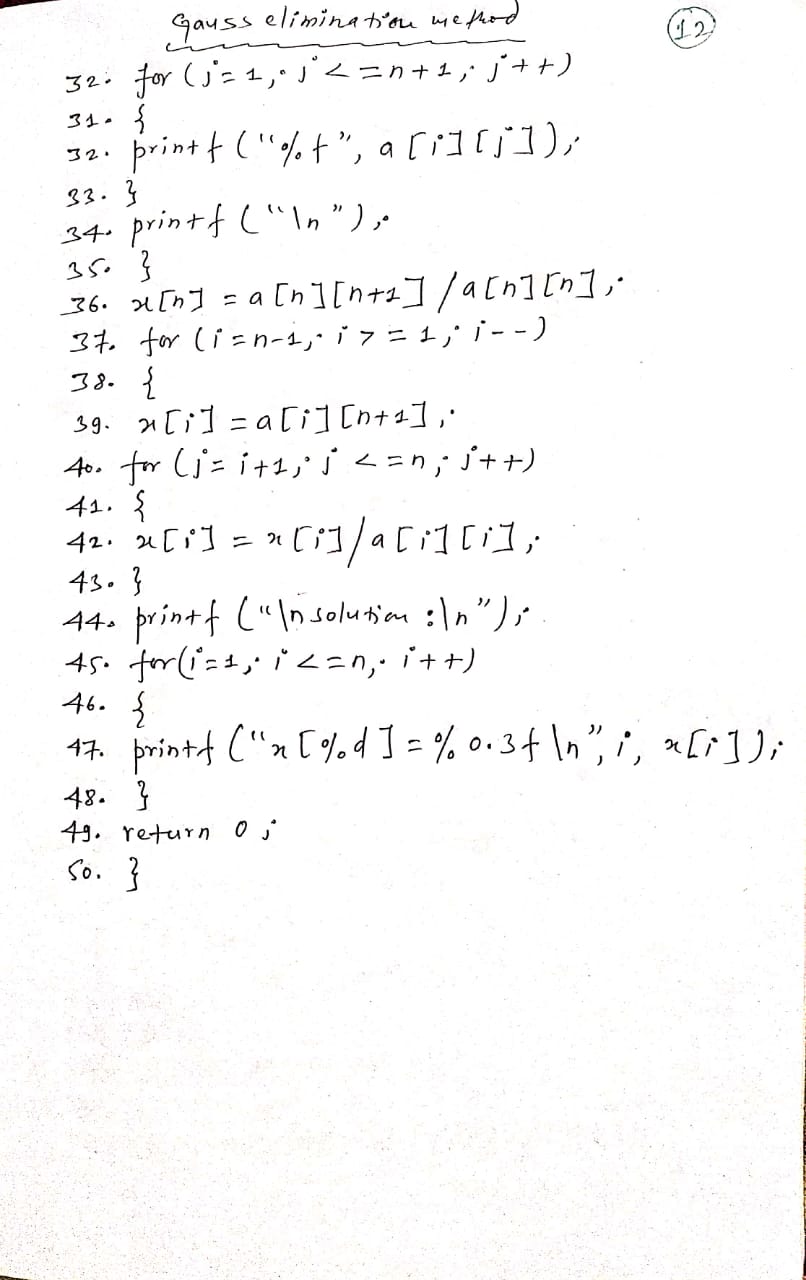 Gauss elimination method
12
32. for (j=1; j<=n+1; j++)
31. {
32. printf ("%f", a[i][j]);
33. }
34. printf ("\n");
35. }
36. x[n] = a[n][n+1]/a[n][n];
37. for (i=n-1; i>=1; i--)
38. {
39. x[i] = a[i][n+1];
40. for (j=i+1; j<=n; j++)
41. {
42. x[i] = x[i]/a[i][i];
43. }
44. printf ("\nsolution:\n");
45. for(i=1; i<=n; i++)
46. {
47. printf ("x[%d]=%0.3f\n", i, x[i]);
48. }
49. return 0;
50. }